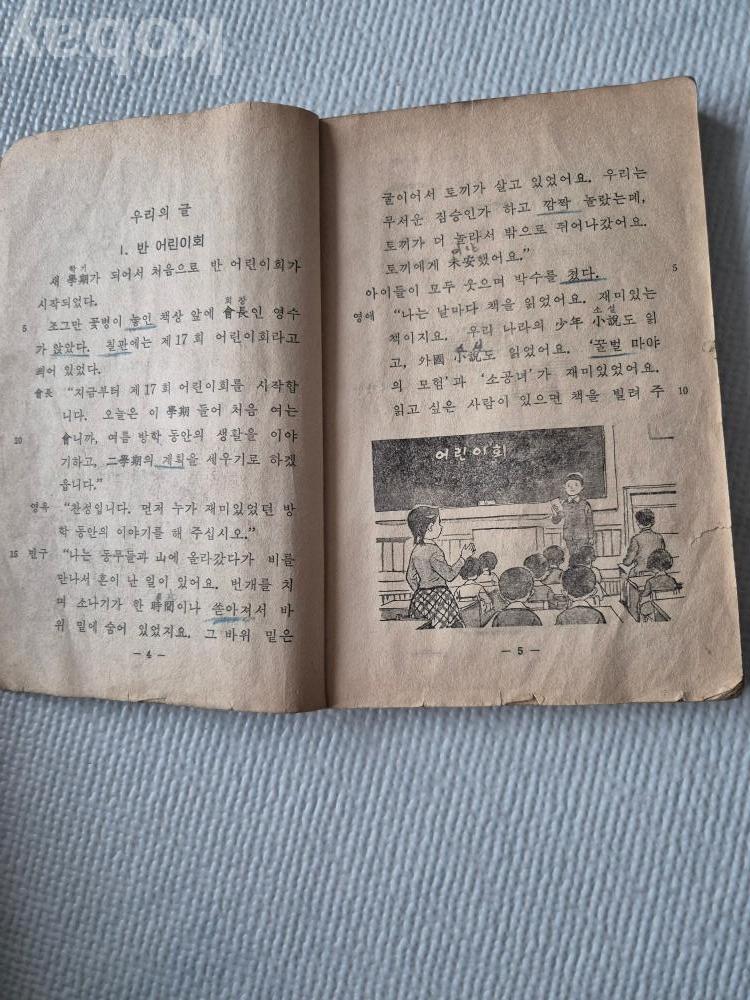 kobay
우리의 글
1. 반 어린이회
학기
새 學期가 되어서 처음으로 반 어린이회가
시작되었다.
회장
5 조그만 꽃병이 놓인 책상 앞에 會長인 영수
가 앉았다. 칠판에는 제 17 회 어린이회라고
씌어 있었다.
會長 “지금부터 제 17 회 어린이회를 시작합
니다. 오늘은 이 學期 들어 처음 여는
10 會니까, 여름 방학 동안의 생활을 이야
기하고, 二學期의 계획을 세우기로 하겠
읍니다.”
영옥 “찬성입니다. 먼저 누가 재미있었던 방
학 동안의 이야기를 해 주십시오.”
15 민구 “나는 동무들과 山에 올라갔다가 비를
만나서 혼이 난 일이 있어요. 번개를 치
며 소나기가 한 時間이나 쏟아져서 바
위 밑에 숨어 있었지요. 그 바위 밑은
— 4 —
굴이어서 토끼가 살고 있었어요. 우리는
무서운 짐승인가 하고 깜짝 놀랐는데,
토끼가 더 놀라서 밖으로 뛰어나갔어요.
토끼에게 未安했어요.”
아이들이 모두 웃으며 박수를 쳤다. 5
영애 “나는 날마다 책을 읽었어요. 재미있는
소설
책이지요. 우리 나라의 少年 小說도 읽
고, 外國 小說도 읽었어요. ‘꿀벌 마야
의 모험’과 ‘소공녀’가 재미있었어요.
읽고 싶은 사람이 있으면 책을 빌려 주 10
어린이회
— 5 —